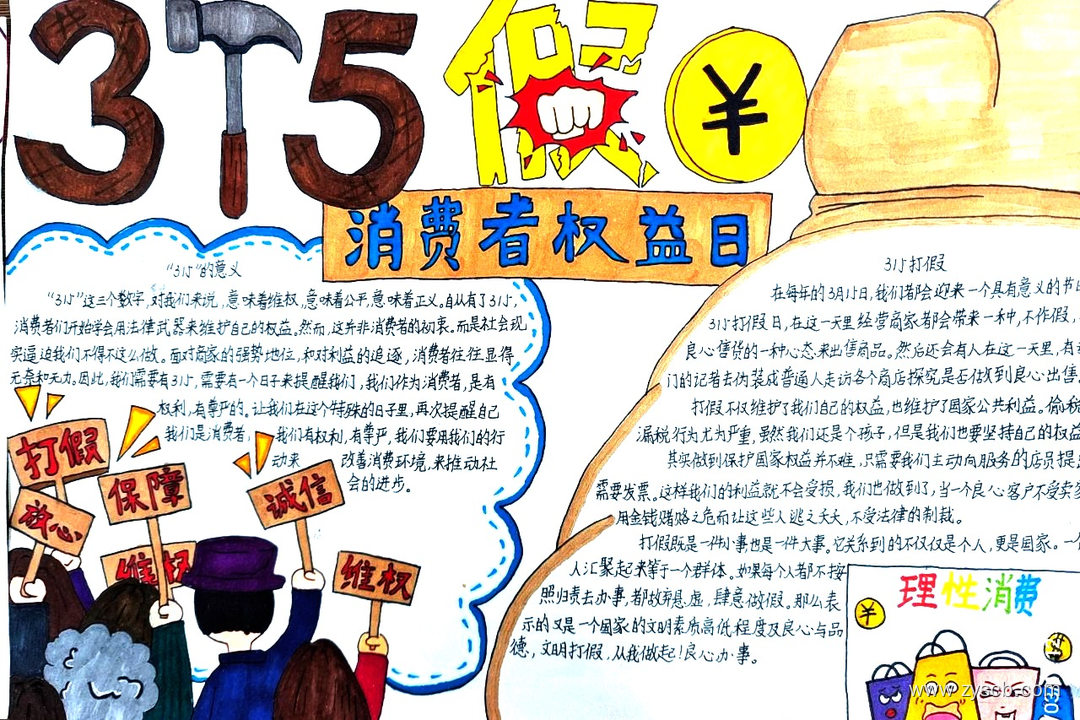 315
假
¥
消费者权益日
“315”的意义
“315”这三个数字,对我们来说,意味着维权,意味着公平,意味着正义。自从有了315,
消费者们开始学会用法律武器来维护自己的权益。然而,这并非消费者的初衷。而是社会现
实逼迫我们不得不这么做。面对商家的强势地位,和对利益的追逐,消费者往往显得
无奈和无力。因此,我们需要有315,需要有一个日子来提醒我们,我们作为消费者,是有
权利,有尊严的。让我们在这个特殊的日子里,再次提醒自己
我们是消费者, 我们有权利,有尊严,我们要用我们的行
动来 改善消费环境,来推动社
会的进步。
打假
保障
诚信
放心
维权
维权
315打假
在每年的3月15日,我们都会迎来一个具有意义的节日
315打假日,在这一天里经营商家都会带来一种,不作假,
良心售货的一种心态来出售商品。然后还会有人在这一天里,有
门的记者去伪装成普通人走访各个商店探究是否做到良心出售。
打假不仅维护了我们自己的权益,也维护了国家公共利益。偷税
漏税行为尤为严重,虽然我们还是个孩子,但是我们也要坚持自己的权益
其实做到保护国家权益并不难,只需要我们主动向服务的店员提
需要发票。这样我们的利益就不会受损,我们也做到了,当一个良心客户不受卖家
用金钱赌赂之危而让这些人逃之夭夭,不受法律的制裁。
打假既是一件小事也是一件大事。它关系到的不仅仅是个人,更是国家。一
人汇聚起来等于一个群体。如果每个人都不按
照归责去办事,都放弃息虚,肆意做假。那么表
示的又是一个国家的文明素质高低程度及良心与品
德,文明打假,从我做起!良心办事。
理性消费
¥
www.zyscb.com